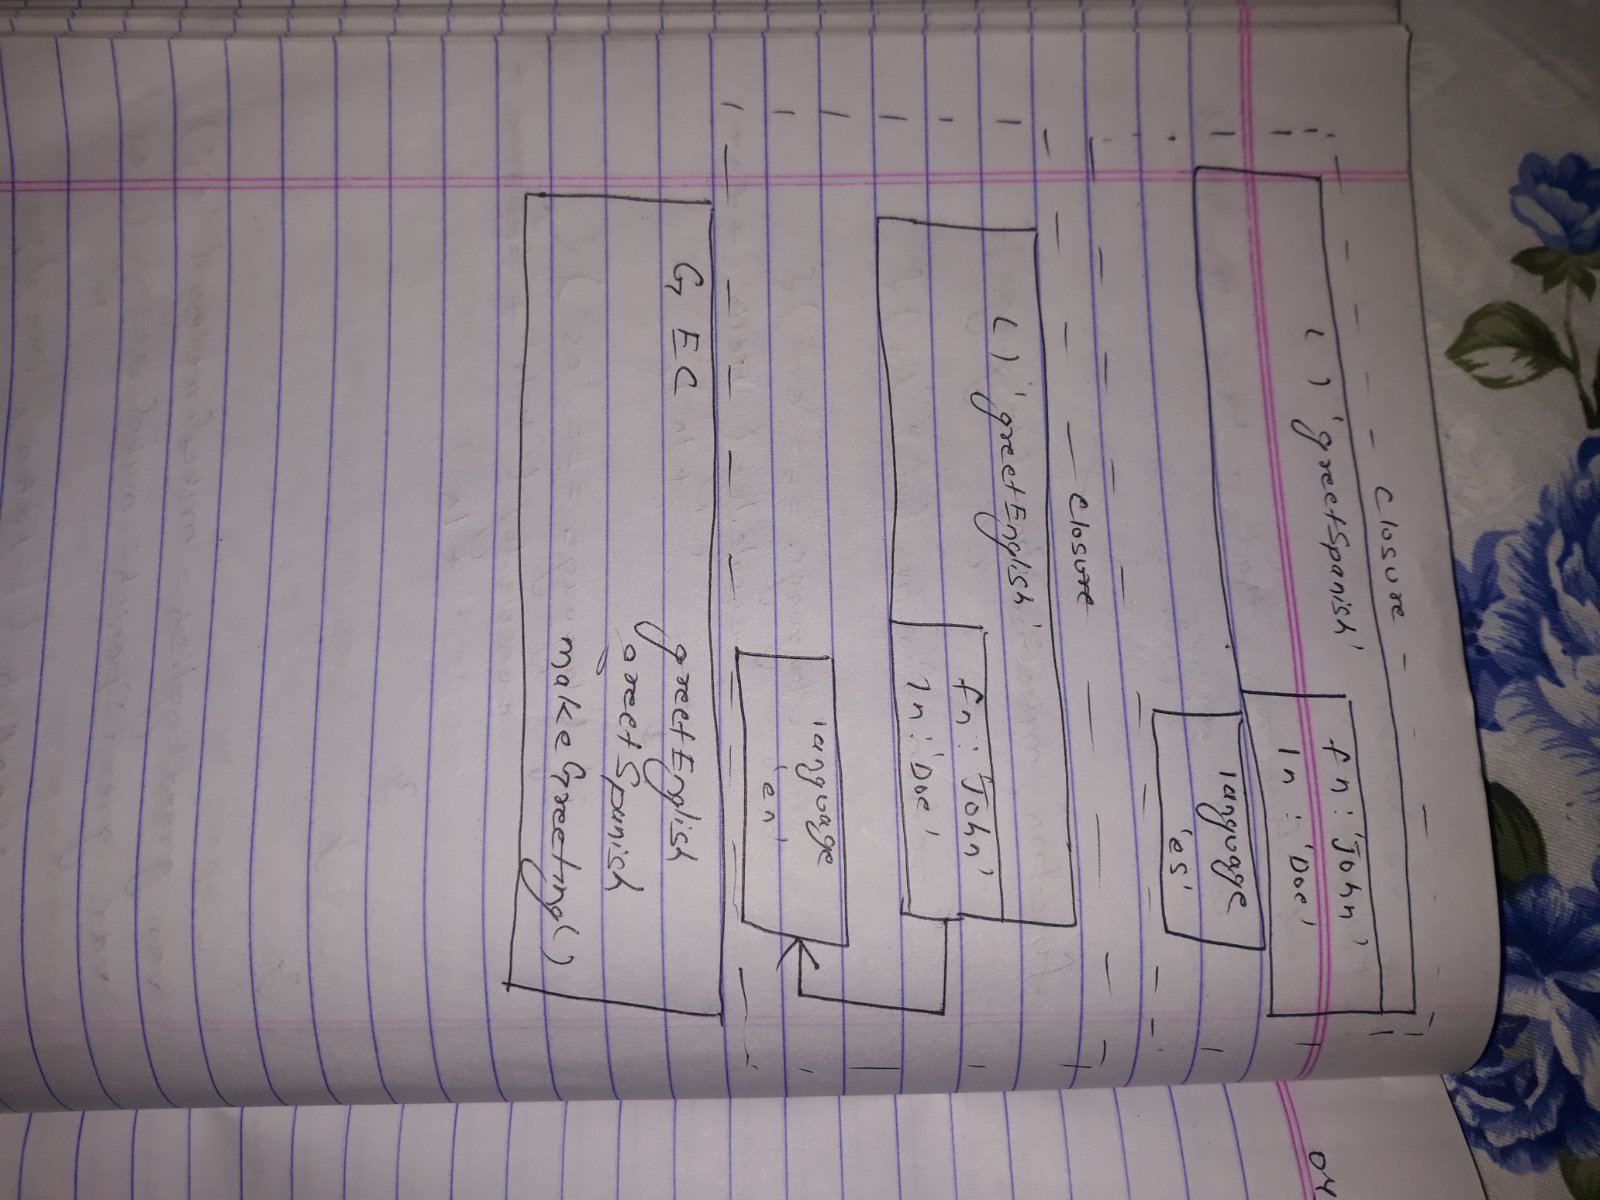 Closure
( ) 'greetSpanish'
fn : 'John'
ln : 'Doe'
language
'es'
Closure
( ) 'greetEnglish'
fn : 'John'
ln : 'Doe'
language
'en'
G EC
greetEnglish
greetSpanish
makeGreeting( )